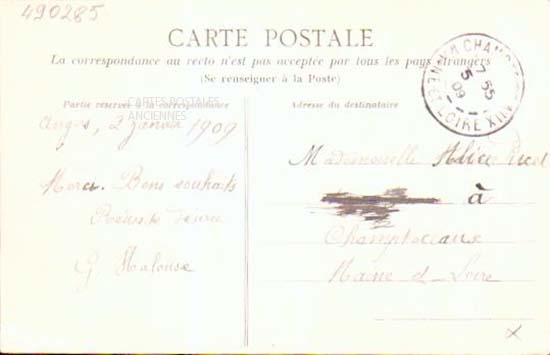 490285
CARTE POSTALE
La correspondance au recto n'est pas acceptée par tous les pays étrangers
(Se renseigner à la Poste)
Partie réservée à la correspondance
CARTES POSTALES
ANCIENNES
Adresse du destinataire
2 janvier 1909
Merci. Bons souhaits
G. Malouse
Mademoiselle Alice
à
Champtoceaux
Maine et Loire
CHAMP
7 55
5
09
LOIRE